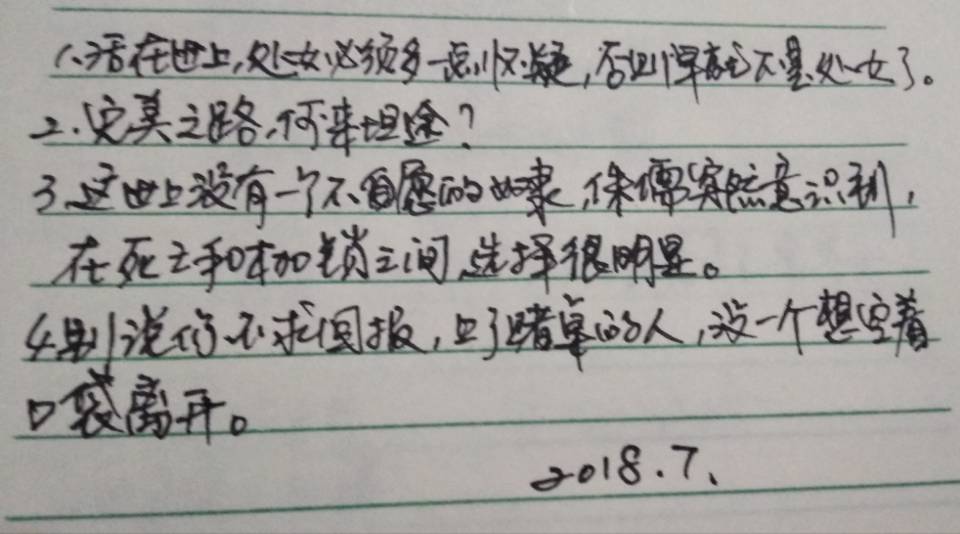 1.活在世上,处女必须多一点怀疑,否则早就不是处女了。
2.完美之路,何来坦途?
3.这世上没有一个不自愿的奴隶,侏儒突然意识到,
在死亡和枷锁之间,选择很明显。
4.别说你不求回报,上了赌桌的人,没一个想空着
口袋离开。
2018.7.